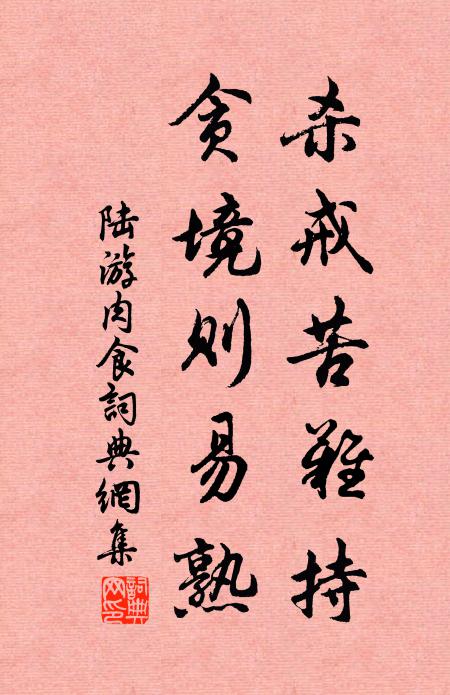 杀戒苦难持
贪境则易熟
陆游肉食詞典網集
詞典网印